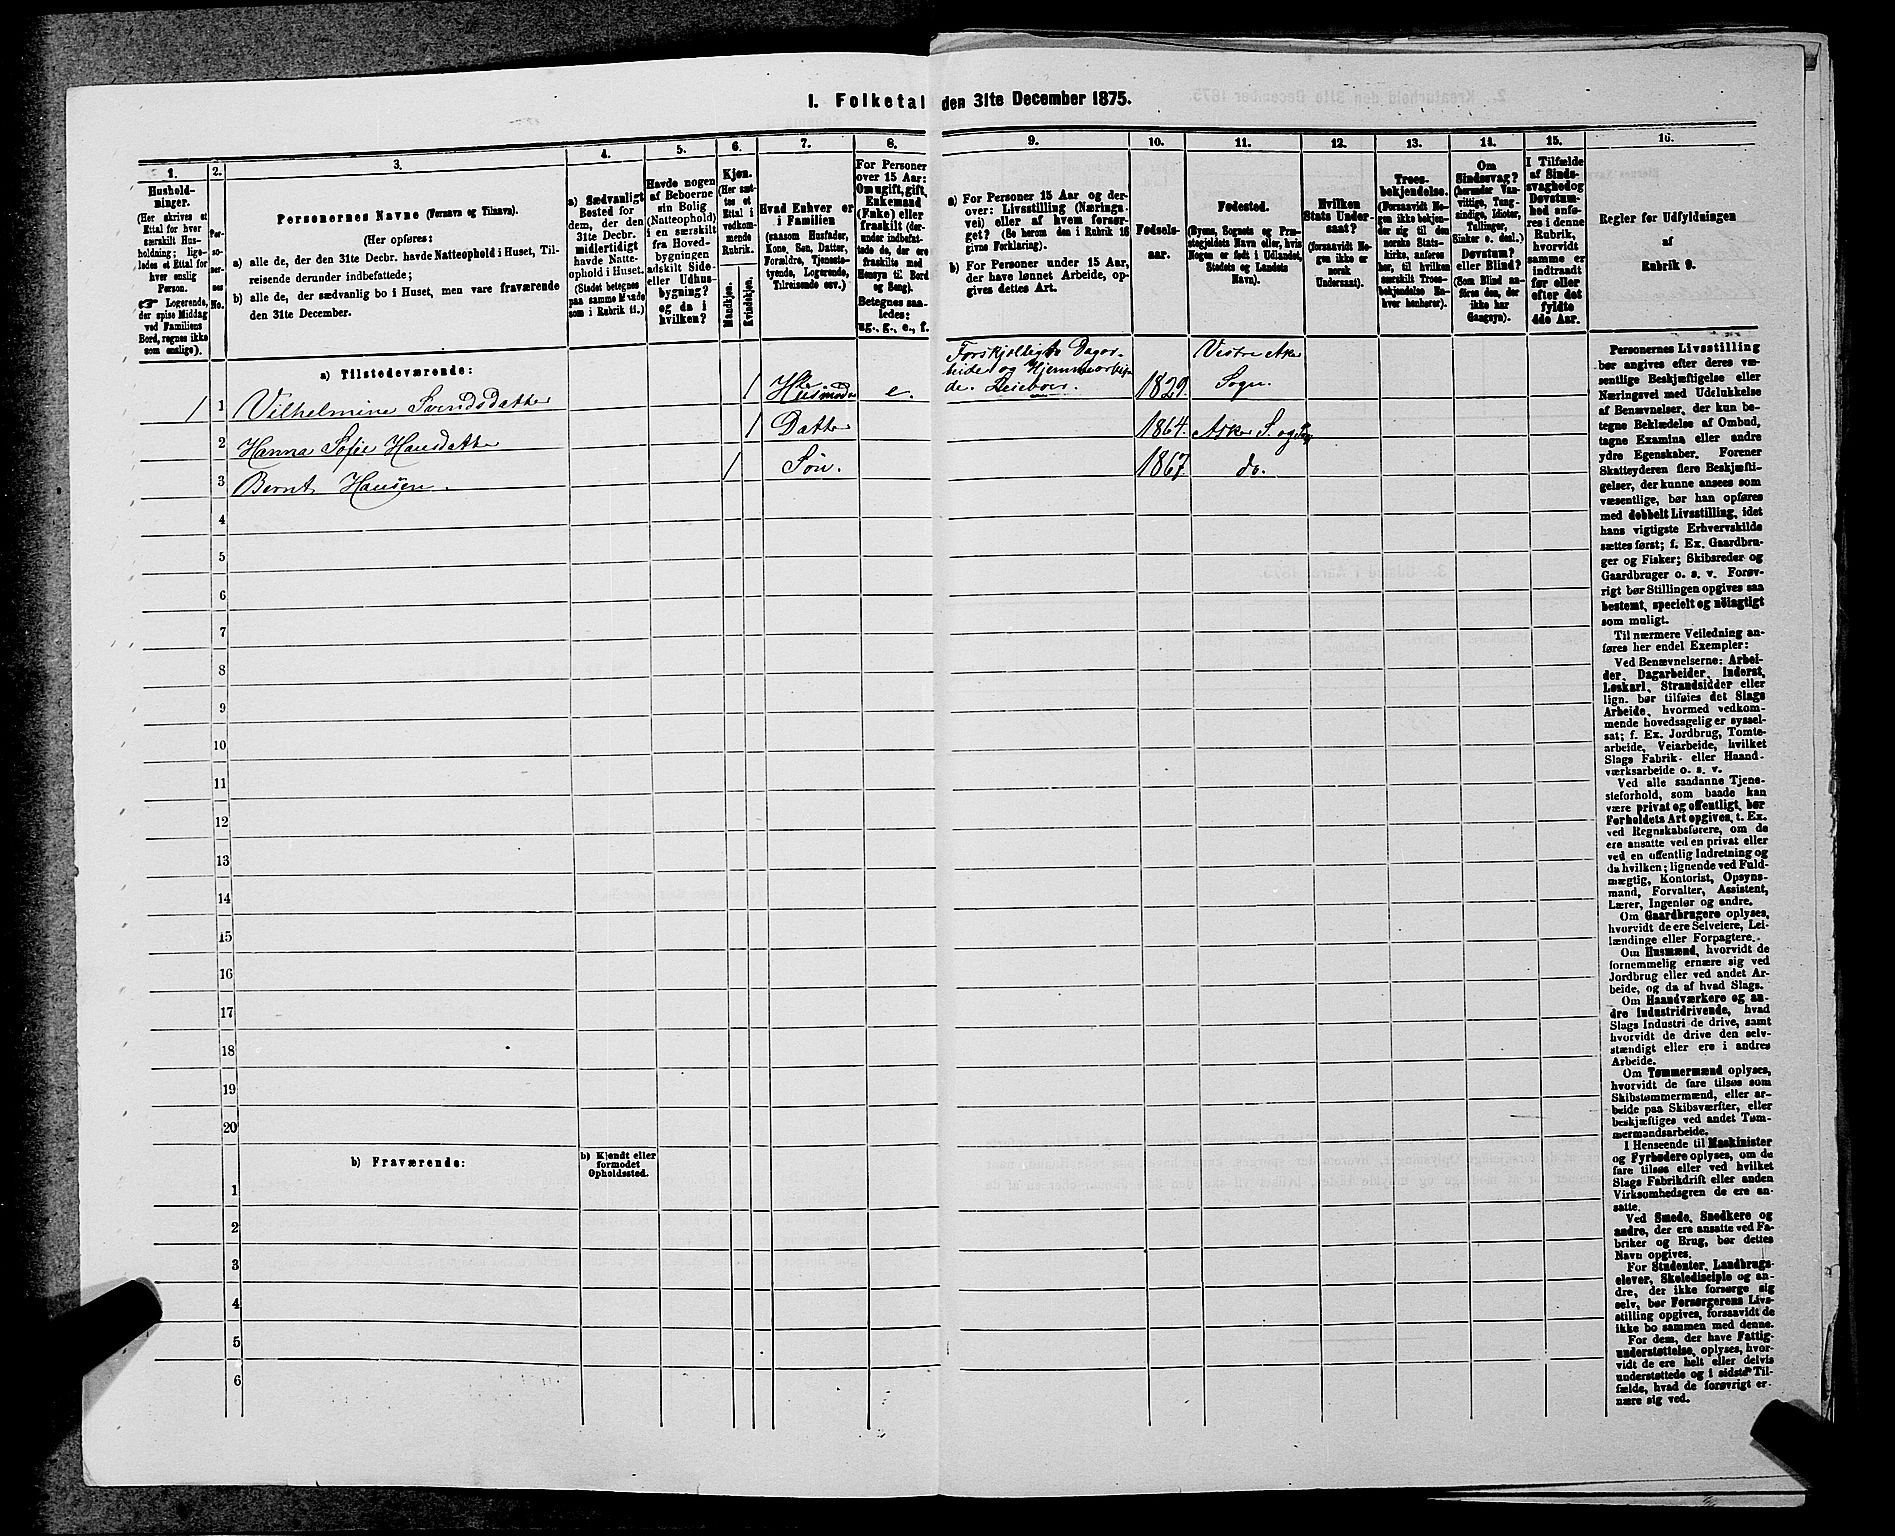 1. Folketal den 31te December 1875.
1.
Hushold-
ninger.
(Her skrives et
Ettal for hver
særskilt Hus-
holdning; lige-
ledes et Ettal for
hver enslig
Person.
☞ Logerende,
der spise Middag
ved Familiens
Bord, regnes ikke
som enslige).
2.
Per-
so-
ner-
nes
No.
3.
Personernes Navne (Fornavn og Tilnavn).
(Her opføres:
a) alle de, der den 31te Decbr. havde Natteophold i Huset, Til-
reisende derunder indbefattede;
b) alle de, der sædvanlig bo i Huset, men vare fraværende
den 31te December.
4.
a) Sædvanligt
Bosted for
dem, der den
31te Decbr.
midlertidigt
havde Natte-
ophold i Huset.
(Stedet betegnes
paa samme Maade
som i Rubrik 11.)
5.
Havde nogen
af Beboerne
sin Bolig
(Natteophold)
i en særskilt
fra Hoved-
bygningen
adskilt Side-
eller Udhus-
bygning?
og da i
hvilken?
6.
Kjøn.
(Her sæt-
tes et
Ettal i
vedkom-
mende
Rubrik.
Mandkjøn.
Kvindekjøn.
7.
Hvad Enhver er
i Familien
(saasom Husfader,
Kone, Søn, Datter,
Forældre, Tjeneste-
tyende, Logerende,
Tilreisende osv.)
8.
For Personer
over 15 Aar:
Om ugift, gift,
Enkemand
(Enke) eller
fraskilt (der-
under indbefat-
tede de, der ere
fraskilte med
Hensyn til Bord
og Seng).
Betegnes saa-
ledes:
ug., g., e., f.
9.
a) For Personer 15 Aar og der-
over: Livsstilling (Næringsvei)
eller af hvem forsør-
get? (Se herom den i Rubrik 16
givne Forklaring).
b) For Personer under 15 Aar,
der have lønnet Arbeide, op-
gives dettes Art.
10.
Fødsels-
aar.
11.
Fødested.
(Byens, Sognets og Præ-
stegjeldets Navn eller, hvis
Nogen er født i Udlandet,
Stedets og Landets
Navn).
12.
Hvilken
Stats Under-
saat?
(forsaavidt No-
gen ikke er
norsk
Undersaat).
13.
Troes-
bekjendelse.
(Forsaavidt No-
gen ikke bekjen-
der sig til den
norske Stats-
kirke, anføres
her, til hvilken
særskilt Troes-
bekjendelse En-
hver henhører).
14.
Om
Sindssvag?
(herunder Van-
vittige, Tung-
sindige, Idioter,
Sinker o. desl.)
Døvstum?
eller Blind?
(Som Blind an-
føres den, der
ikke har
Gangsyn).
15.
I Tilfælde
af Sinds-
svaghed og
Døvstum-
hed anfø-
res i denne
Rubrik,
hvorvidt
samme er
indtraadt
før eller
efter det
fyldte
4de Aar.
16.
Regler for Udfyldningen
af
Rubrik 9.
a) Tilstedeværende:
1 1 Vilhelmine Svendsdatter 1 Husmoder e. Forskjelligt Dagar-
beide og Hjemmearbei-
de. Leieboer. 1829. Vestre Aker
Sogn.
2 Hanna Sofie Hansdatter 1 Datter 1864. Asker S. og
3 Bernt Hansen. 1 Søn. 1867. do.
4
5
6
7
8
9
10
11
12
13
14
15
16
17
18
19
20
b) Fraværende:
b) Kjendt eller
formodet
Opholdssted.
1
2
3
4
5
6
Personernes Livsstilling
bør angives efter deres væ-
sentlige Beskjæftigelse eller
Næringsvei med Udelukkelse
af Benævnelser, der kun be-
tegne Beklædelse af Ombud,
tagne Examina eller andre
ydre Egenskaber. Forener
Skatteyderen flere Beskjæfti-
gelser, der kunne ansees som
væsentlige, bør han opføres
med dobbelt Livsstilling, idet
hans vigtigste Erhvervskilde
sættes først; f. Ex. Gaardbru-
ger og Fisker; Skibsreder og
Gaardbruger o. s. v. Forøv-
rigt bør Stillingen opgives saa
bestemt, specielt og nöiagtigt
som muligt.
Til nærmere Veiledning an-
føres her endel Exempler:
Ved Benævnelserne: Arbei-
der, Dagarbeider, Inderst,
Løskarl, Strandsidder eller
lign. bør tilføies det Slags
Arbeide, hvormed vedkom-
mende hovedsagelig er syssel-
sat; f. Ex. Jordbrug, Tomte-
arbeide, Veiarbeide, hvilket
Slags Fabrik- eller Haand-
værksarbeide o. s. v.
Ved alle saadanne Tjene-
steforhold, som baade kan
være privat og offentligt, bør
Forholdets Art opgives, t. Ex.
ved Regnskabsførere, om de
ere ansatte ved en privat eller
ved en offentlig Indretning og
da hvilken; lignende ved Fuld-
mægtig, Kontorist, Opsyns-
mand, Forvalter, Assistent,
Lærer, Ingeniør og andre.
Om Gaardbrugere oplyses,
hvorvidt de ere Selveiere, Lei-
lændinge eller Forpagtere.
Om Husmænd, hvorvidt de
fornemmelig ernære sig ved
Jordbrug eller ved andet Ar-
beide, og da af hvad Slags.
Om Haandværkere og an-
dre Industridrivende, hvad
Slags Industri de drive, samt
hvorvidt de drive den selv-
stændigt eller ere i andres
Arbeide.
Om Tømmermænd oplyses,
hvorvidt de fare tilsøs som
Skibstømmermænd, eller ar-
beide paa Skibsværfter, eller
beskjæftiges ved andet Tøm-
mermandsarbeide.
I Henseende til Maskinister
og Fyrbødere oplyses, om de
fare tilsøs eller ved hvilket
Slags Fabrikdrift eller anden
Virksomhedsgren de ere an-
satte.
Ved Smede, Snedkere og
andre, der ere ansatte ved Fa-
briker og Brug, bør dettes
Navn opgives.
For Studenter, Landbrugs-
elever, Skoledisciple og an-
dre, der ikke forsørge sig
selv, bør Forsørgerens Livs-
stilling opgives, forsaavidt de
ikke bo sammen med denne.
For dem, der have Fattig-
understøttelse, oplyses, hvor-
vidt de ere helt eller delvis
understøttede og i sidste Til-
fælde, hvad de forøvrigt er-
nære sig ved.